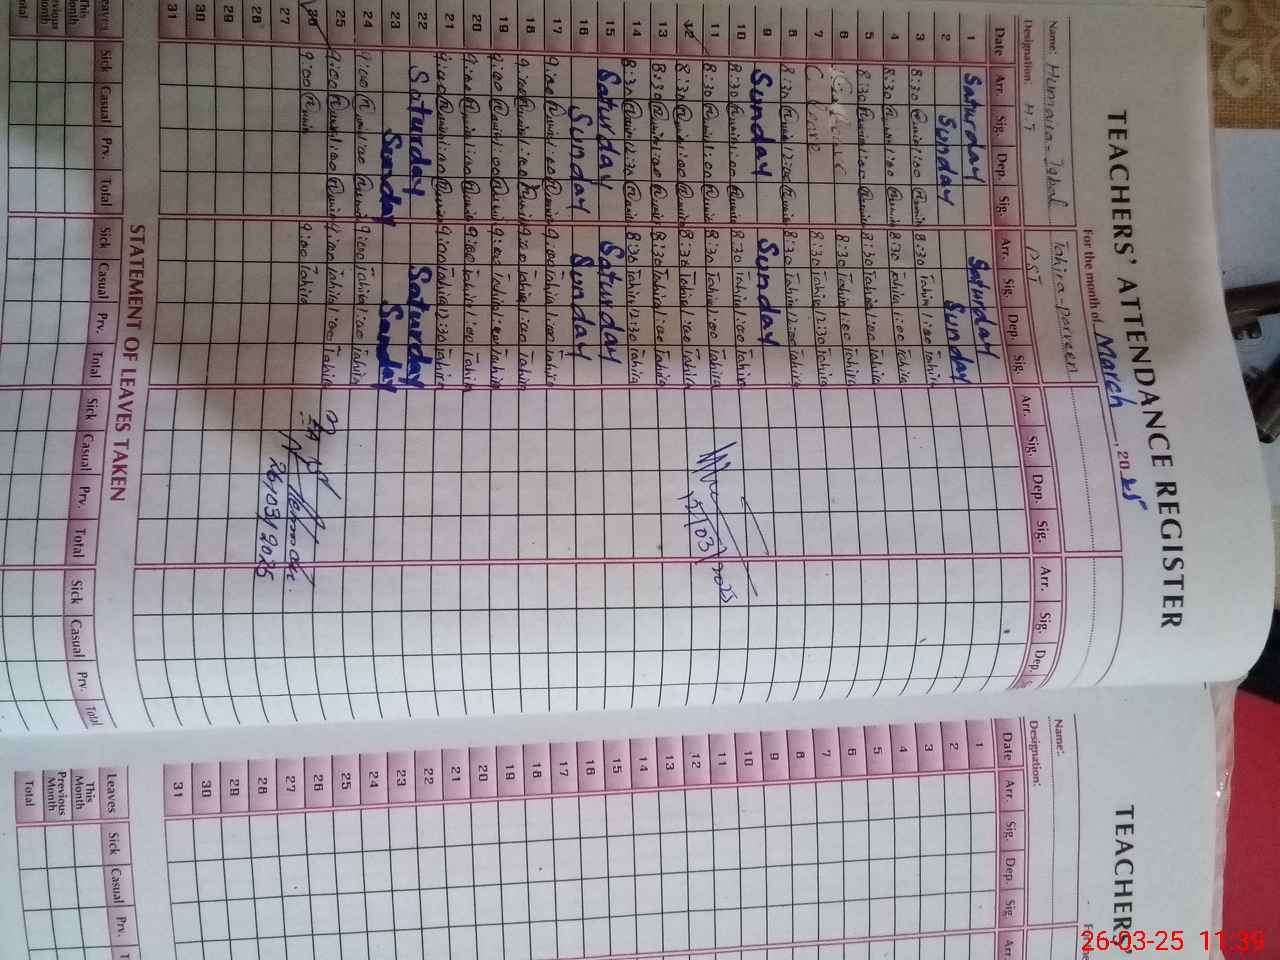 TEACHERS' ATTENDANCE REGISTER
For the month of March, 2025
Name: Humaira Iqbal Tahira Parveen
Designation: PST
Date Arr. Sig. Dep. Sig. Arr. Sig. Dep. Sig. Arr. Sig. Dep. Sig. Arr. Sig. Dep.
1 Saturday Saturday
2 Sunday Sunday
3 8:30 1:00 8:30 Tahira 1:00 Tahira
4 8:30 1:00 8:30 Tahira 1:00 Tahira
5 8:30 1:00 8:30 Tahira 1:00 Tahira
6 8:30 Tahira 1:00 Tahira
7 C Leave 8:30 Tahira 12:30 Tahira
8 8:30 12:00 8:30 Tahira 12:00 Tahira
9 Sunday Sunday
10 8:30 1:00 8:30 Tahira 1:00 Tahira
11 8:30 1:00 8:30 Tahira 1:00 Tahira
12 8:30 1:00 8:30 Tahira 1:00 Tahira
13 8:30 1:00 8:30 Tahira 1:00 Tahira
14 8:30 12:30 8:30 Tahira 12:30 Tahira
15 Saturday Saturday
16 Sunday Sunday
17 9:00 1:00 9:00 Tahira 1:00 Tahira
18 9:00 1:00 9:00 Tahira 1:00 Tahira
19 9:00 1:00 9:00 Tahira 1:00 Tahira
20 9:00 1:00 9:00 Tahira 1:00 Tahira
21 9:00 1:00 9:00 Tahira 12:30 Tahira
22 Saturday Saturday
23 Sunday Sunday
24 9:00 1:00 9:00 Tahira 1:00 Tahira
25 9:00 1:00 9:00 Tahira 1:00 Tahira
26 9:00 9:00 Tahira
26/03/2025
27
28
29
30
31
STATEMENT OF LEAVES TAKEN
Leaves Sick Casual Prv. Total Sick Casual Prv. Total Sick Casual Prv. Total Sick Casual Prv. Total
This Month
Previous Month
Total
TEACHERS'
Name:
Designation:
Date Arr. Sig. Dep. Sig. Arr.
1
2
3
4
5
6
7
8
9
10
11
12
13
14
15
16
17
18
19
20
21
22
23
24
25
26
27
28
29
30
31
Leaves Sick Casual Prv.
This Month
Previous Month
Total
26-03-25 11:39